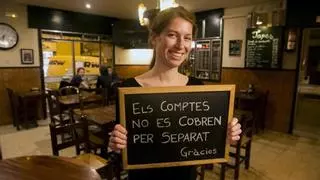 Tapes
ELS COMPTES
NO ES COBREN
PER SEPARAT
Gràcies